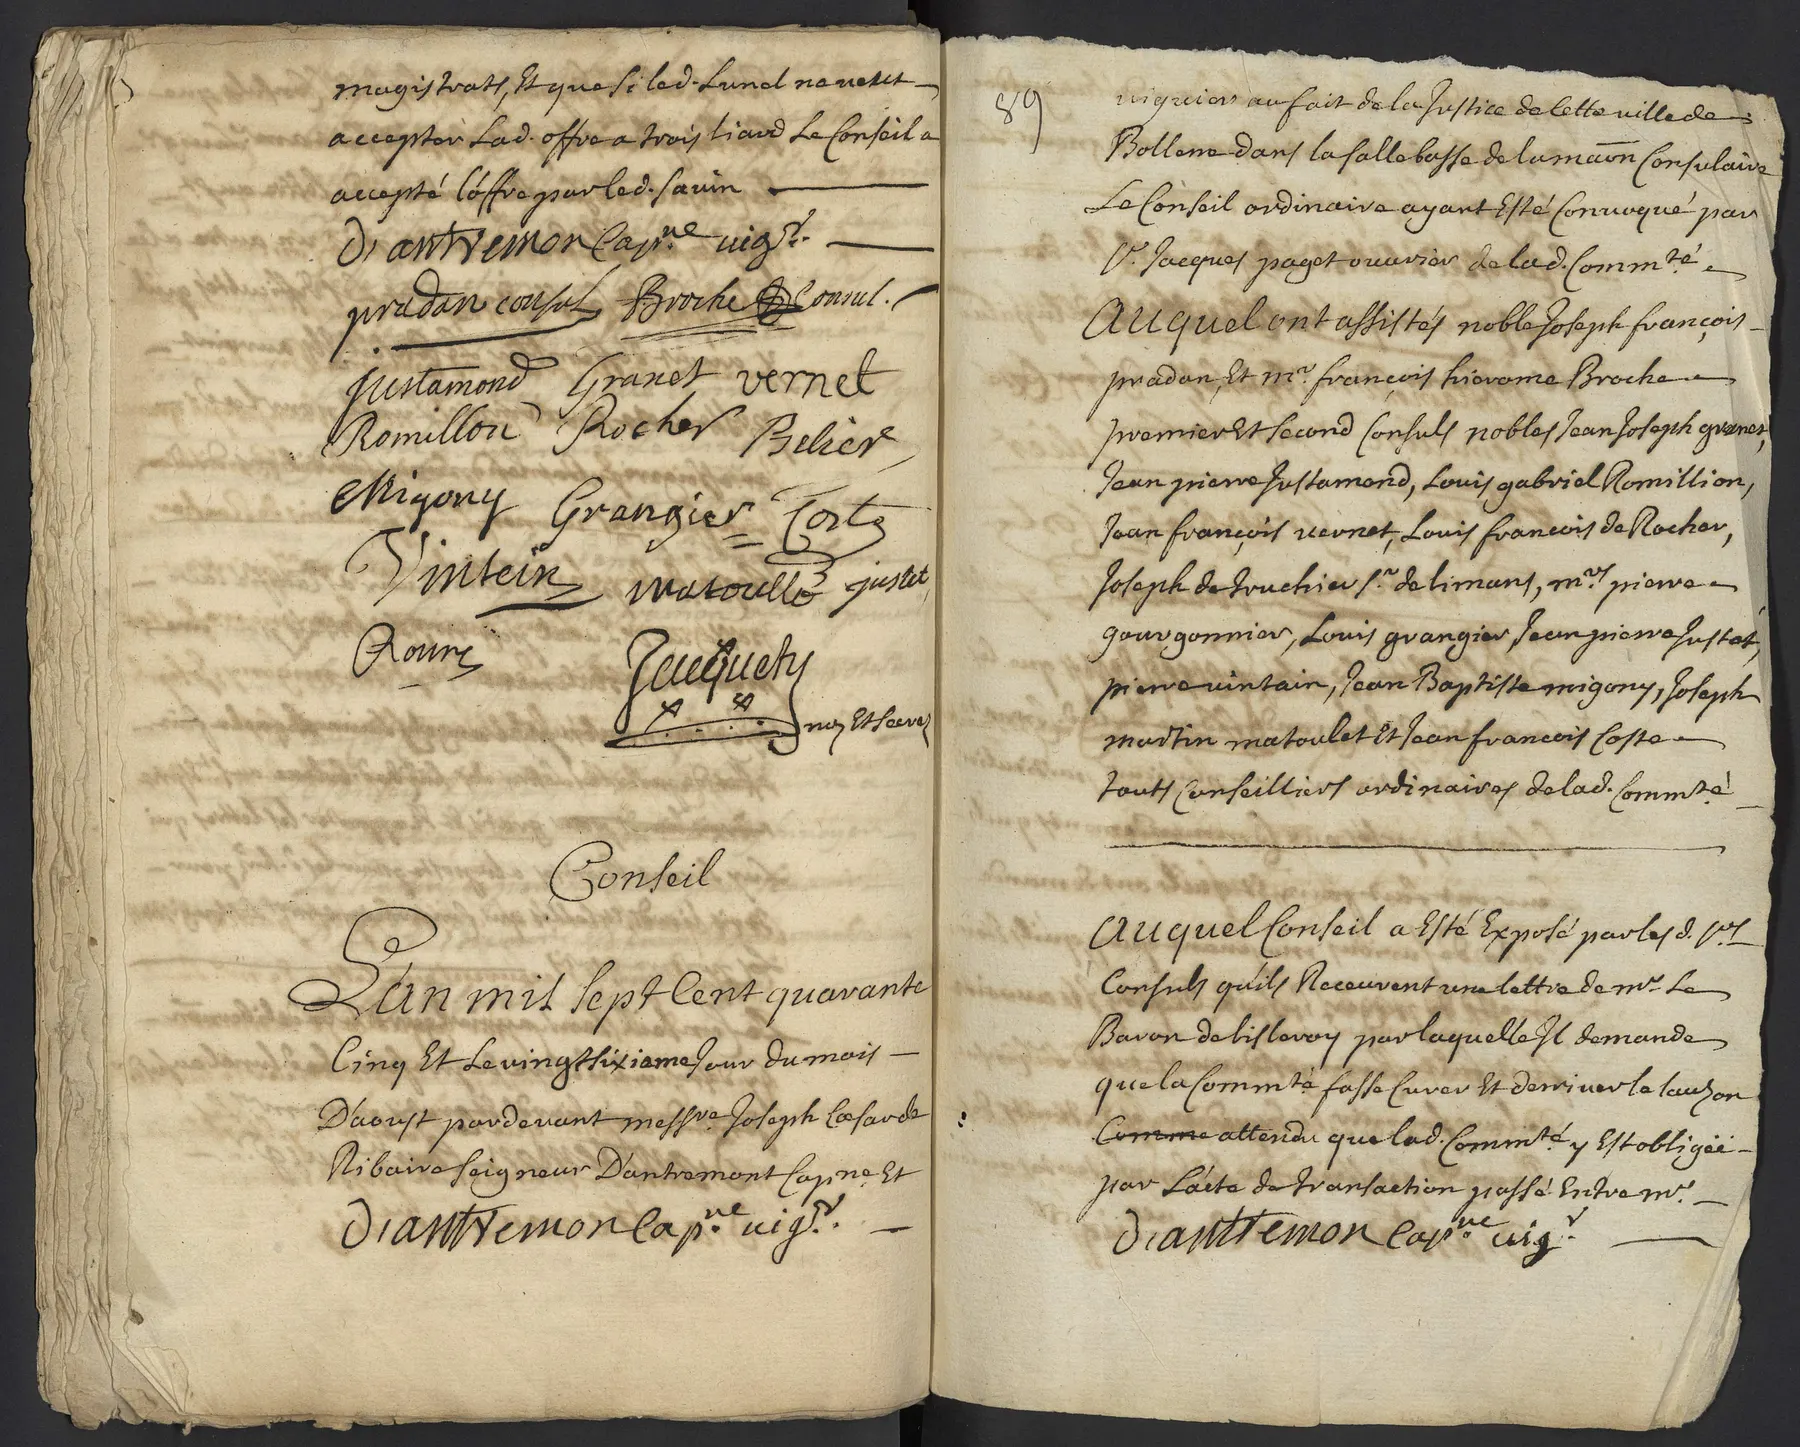 magistrats, Et que si led. Lunel ne veut
accepter Lad. offre a trois liard Le Conseil a
accepté l'offre par led. savin
D'antremon Cap.ne vig.r
pradan consul Broche Consul.
justamond Granet vernet
Romillon Rocher Beliere
Migony Grangier Coste
Vintein matoulle justet
Roure
Jacquety
not Et secre
Conseil
L'an mil sept Cent quarante
Cinq Et Le vingt sixieme Jour du mois
D'aoust pardevant mess.re Joseph Cæsar de
Ribaire seigneur D'antremont Capne Et
D'antremon Cap.ne vig.r
89
viguier au fait de la Justice de Cette ville de
Bollene dans la salle basse de la maōn Consulaire
Le Conseil ordinaire ayant Esté Convoqué par
S.r Jacques paget ouvrier de lad. Comm.té
Auquel ont assistés noble Joseph françois
pradan, Et m.r françois hierome Broche
premier Et second Consuls nobles Jean Joseph granet,
Jean pierre Justamond, Louis gabriel Romillion,
Jean françois vernet, Louis francois de Rocher,
Joseph de truchier s.r de limans, m.rs pierre
gourgonnier, Louis grangier, Jean pierre Justet,
pierre vintain, Jean Baptiste migony, Joseph
martin matoulet Et Jean francois Coste
touts Conseilliers ordinaires de lad. Comm.té
Auquel Conseil a Esté Exposé par les d. s.rs
Consuls qu'ils Receuvrent une lettre de m.r Le
Baron de lisleroy par laquelle Jl demande
que la Comm.té fasse Curer Et derriver le lauzon
Comme attendu que lad. Comm.té y Est obligée
par L'acte de transaction passé Entre m.r
D'antremon Cap.ne vig.r